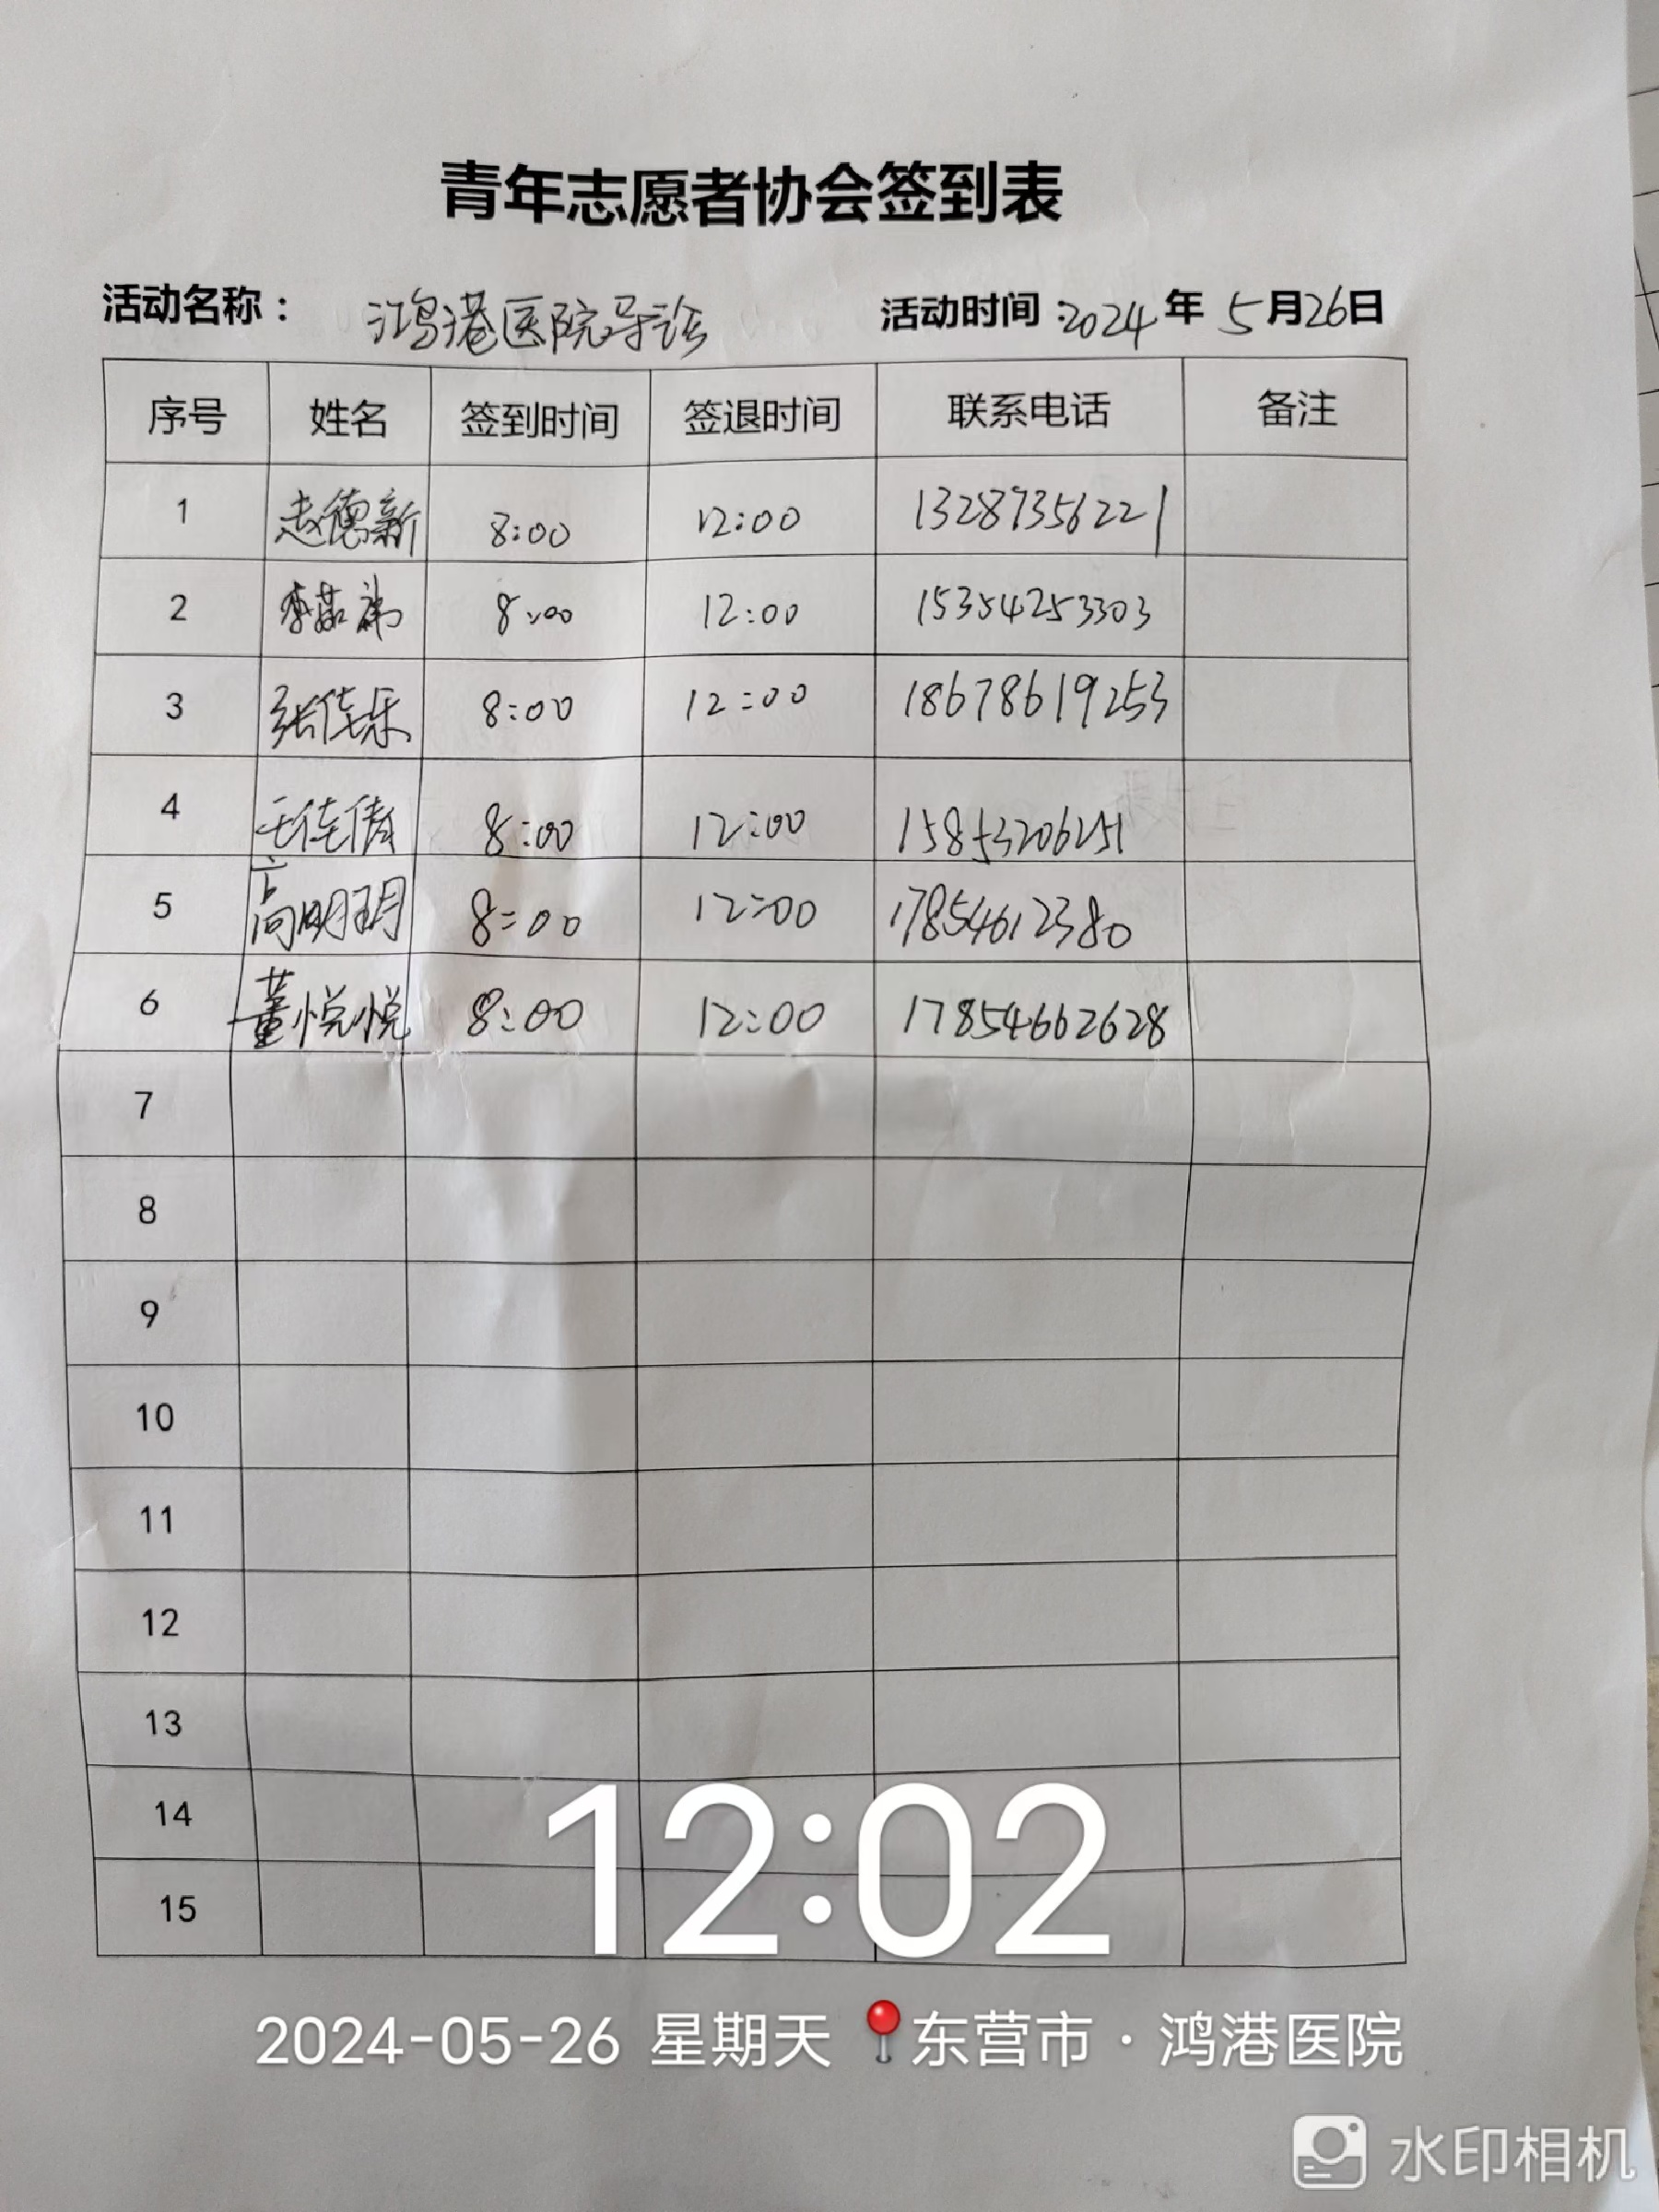 青年志愿者协会签到表
活动名称： 鸿港医院导诊 活动时间：2024年 5月26日
序号 姓名 签到时间 签退时间 联系电话 备注
1 赵德新 8:00 12:00 13287356221
2 李 8:00 12:00 15354253303
3 张佳乐 8:00 12:00 18678619253
4 王佳倩 8:00 12:00 15853206251
5 高明玥 8:00 12:00 17854612380
6 董悦悦 8:00 12:00 17854662628
7
8
9
10
11
12
13
14
15
12:02
2024-05-26 星期天 东营市·鸿港医院
水印相机